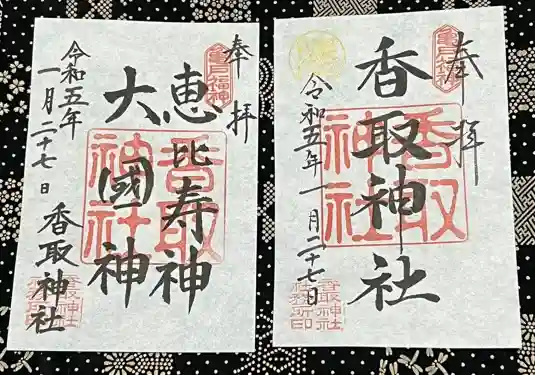 奉拝
亀戸福神
恵比寿神
大國神
香取神社
令和五年
一月二十七日
香取神社
奉拝
亀戸福神
香取神社
香取神社
令和五年一月二十七日
香取神社
社務所印